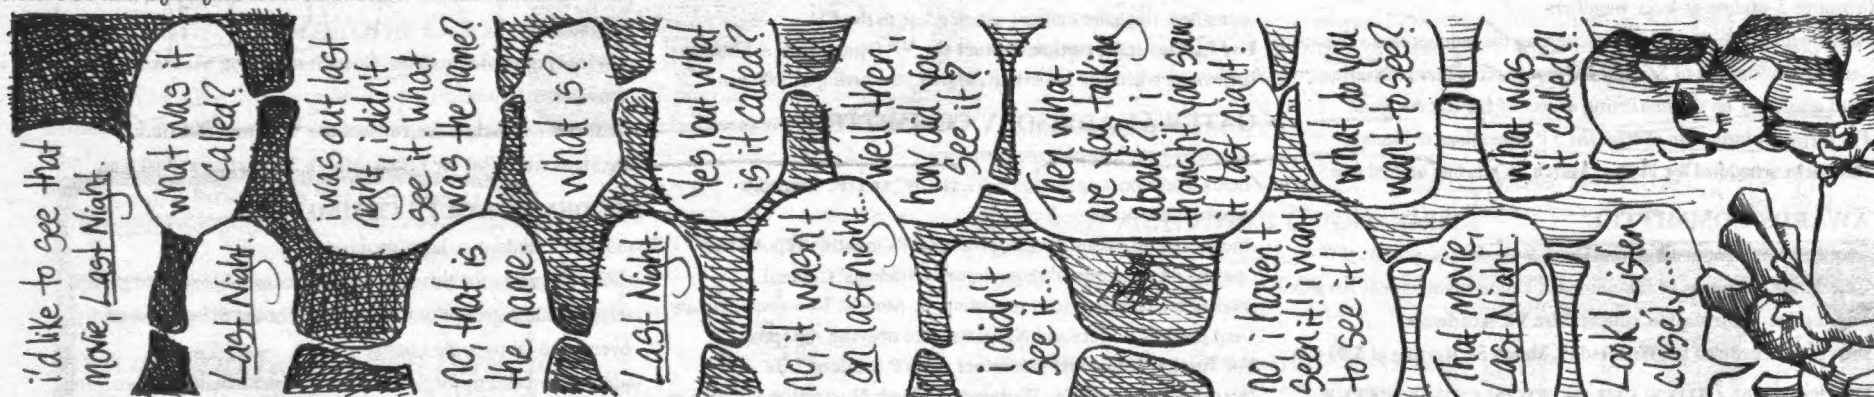 i'd like to see that
movie Last Night
what was it
called?
Last Night
i was out last
night, i didn't
see it what
was the name?
no, that is
the name.
what is?
Last Night
Yes, but what
is it called?
no it was n't
on last night...
Well then
how did you
see it?
i didn't
see it
Then what
are you talking
about? i
thought you saw
it last night!
no, i haven't
seen it i want
to see it!
what do you
want to see?
That movie,
Last Night
What was
it called?!
Look, Listen
closely....